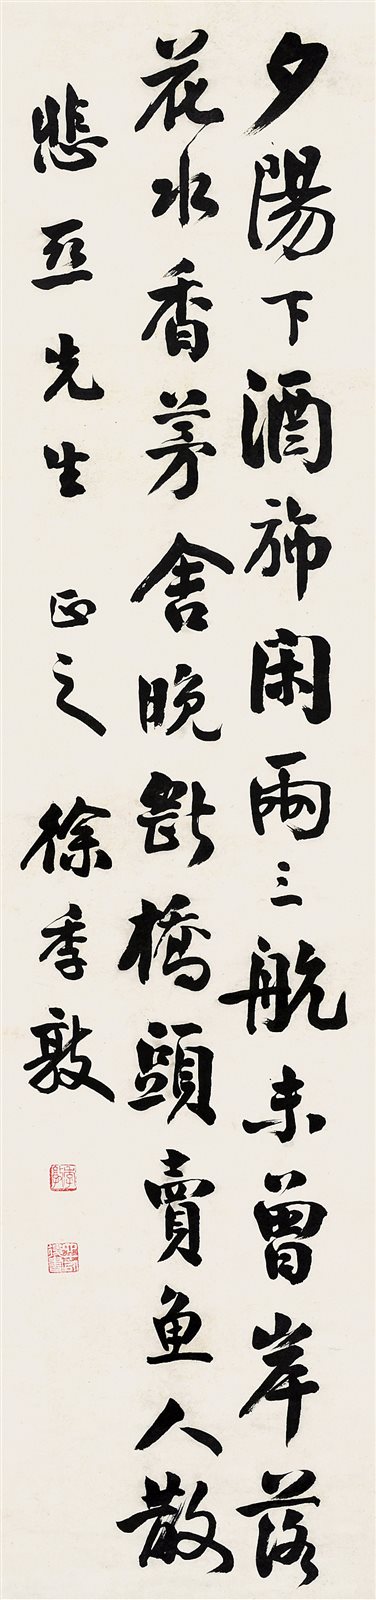 夕陽下酒旆閑兩三航未曾岸落
花水香茅舍晚斷橋頭賣魚人散
悲亞先生 正之 徐季敦